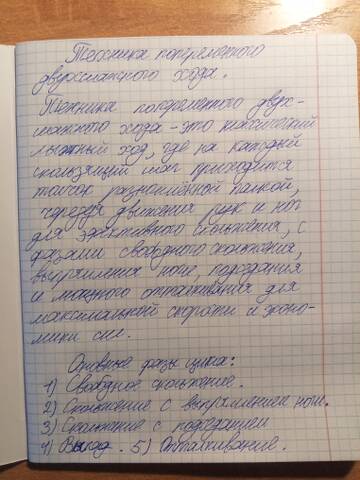 Техника попеременного
двухшажного хода.
Техника попеременного двух-
шажного хода - это классический
лыжный ход, где на каждый
скользящий шаг приходится
толчок разноимённой палкой,
чередуя движения рук и ног
для эффективного скольжения, с
фазами свободного скольжения,
выпрямления ноги, подседания
и мощного отталкивания для
максимальной скорости и эконо-
мики сил.
Основные фазы цикла:
1) Свободное скольжение.
2) Скольжение с выпрямлением ноги.
3) Скольжение с подседанием
4) Выпад. 5) Отталкивание.